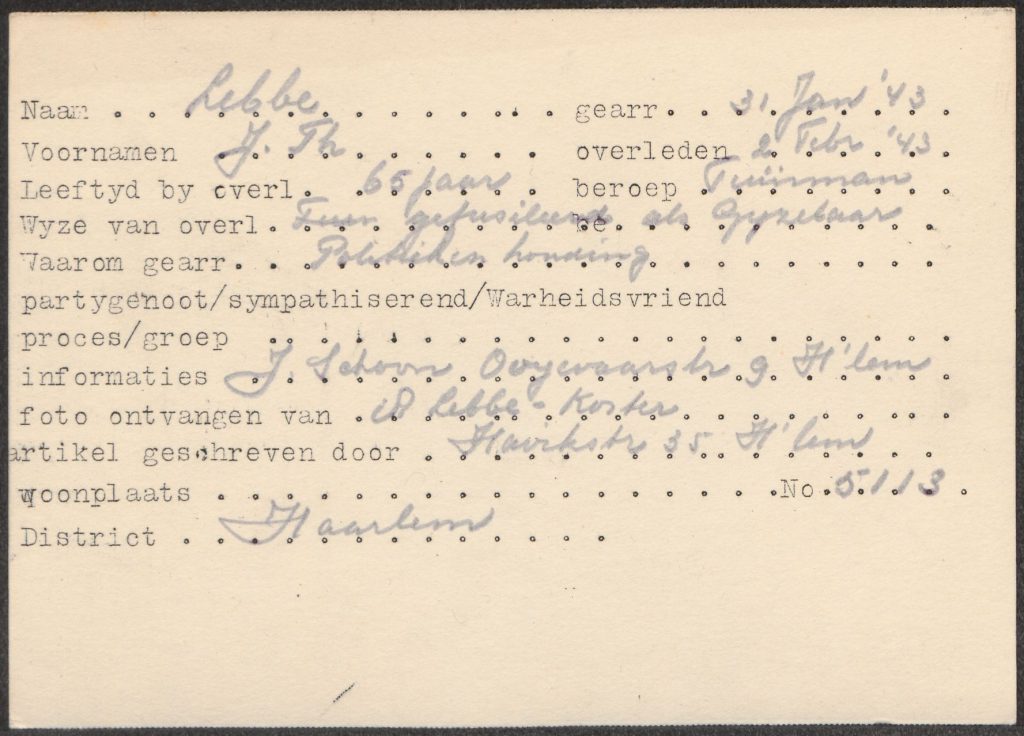 Naam . . Lebbe . . . . . . gearr . . 31 Jan '43
Voornamen J. Th . . . . . . overleden 2 Febr '43
Leeftyd by overl. 65 jaar . . beroep Tuinman
Wyze van overl. gefusileerd als Gyzelaar
Waarom gearr. . Politieken houding
partygenoot/sympathiserend/Warheidsvriend
proces/groep . . . . . . . . . . . . . . . .
informaties J. Schoorn 9 H'lem
foto ontvangen van Lebbe - Koster
artikel geschreven door . Havikstr 35 H'lem
woonplaats . . . . . . . . . . . . . No. 5113 .
District . . Haarlem